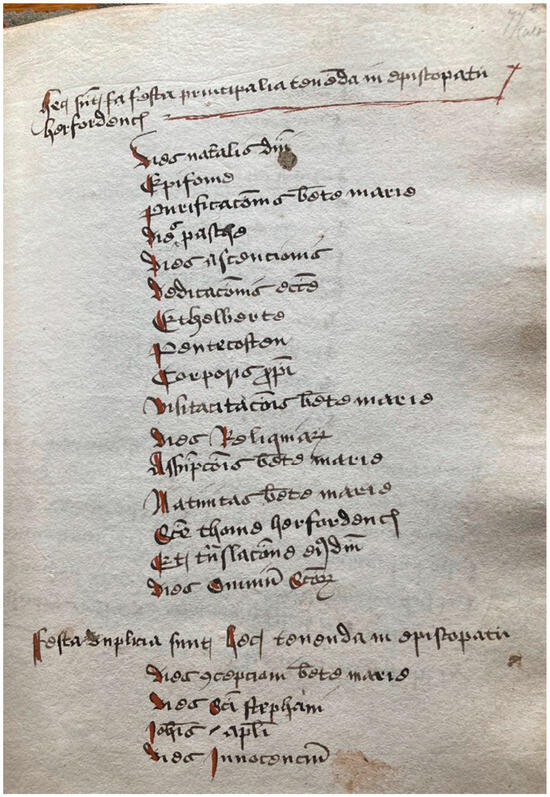 hec sūt fa festa principalia tenēda in episcopatu
herfordenc
Dies natalis dm̄
Epifonie
Purificacōnis b̄ete marie
Dies pasche
Dies ascencionis
Dedicacōnis eccē
Ethelberte
Pentecosten
Corporis xp̄i
Visitacitacōis b̄ete marie
Dies Reliquiaꝝ
Assūpcōis b̄ete marie
Natiuitas b̄ete marie
Scē thome herfordenc
Et tn̄slacōne eiꝰdm̄
Dies Omniū Scōꝝ
Festa Duplicia sunt hec tenenda in episcopatu
Dies ꝯcepciom b̄ete marie
Dies Sci stephani
Iohīs apl̄i
Dies Innocenciū